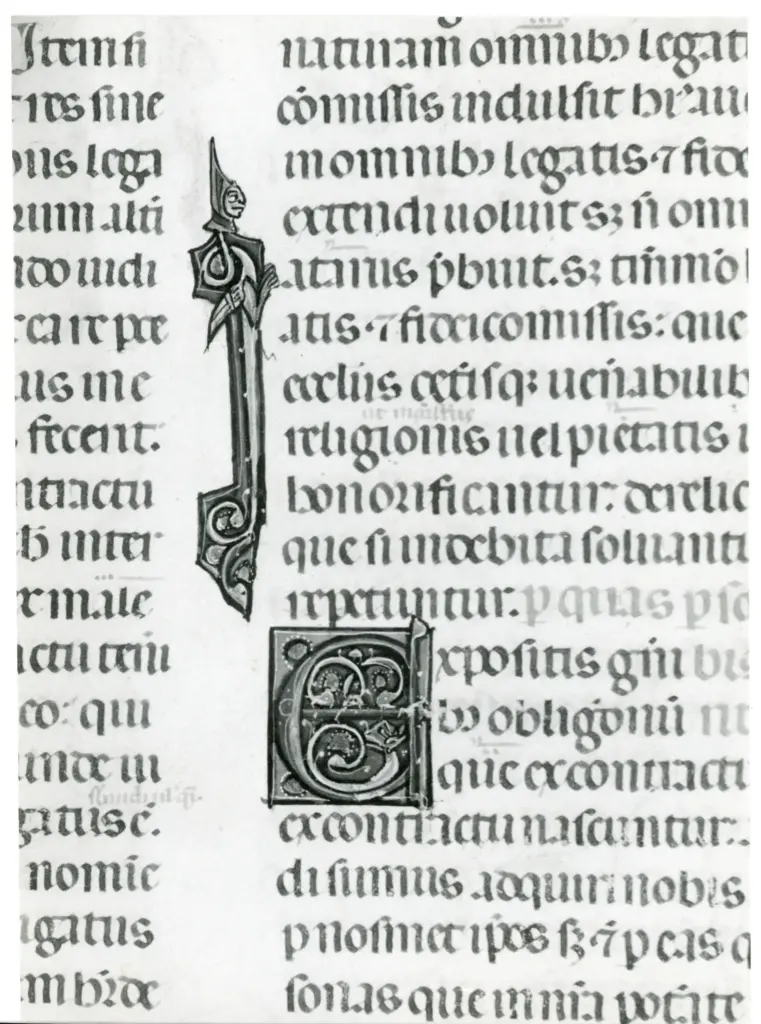 Item si
res sine
bus lega
rum alti
do uidi
us in e
fecerit:
ntractu
ħ inter
r male
actu teñi
co: qui
inde ui
gatus ē.
nomīe
igatus
naturam omnibꝰ legat
cōmissis indulsit
in omnibꝰ legatis ⁊ fide
extendi uoluit sꝫ ñ omn
ataribus p̄buit. sꝫ tm̄mō
atis ⁊ fideicomissis: que
eccliis cet̃isqꝫ uen̄abilib
religionis uel pietatis i
honorificantur: derelic
que si indebita soluant
repetuntur. p quas p so
Expositis geñi bus
bꝰ obligōnū
que ex contractu
ex contractu nascuntur:
di sumus adquiri nobis
p nosmet ip̄os sꝫ ⁊ p eas q
sonas que in nr̄a potāte